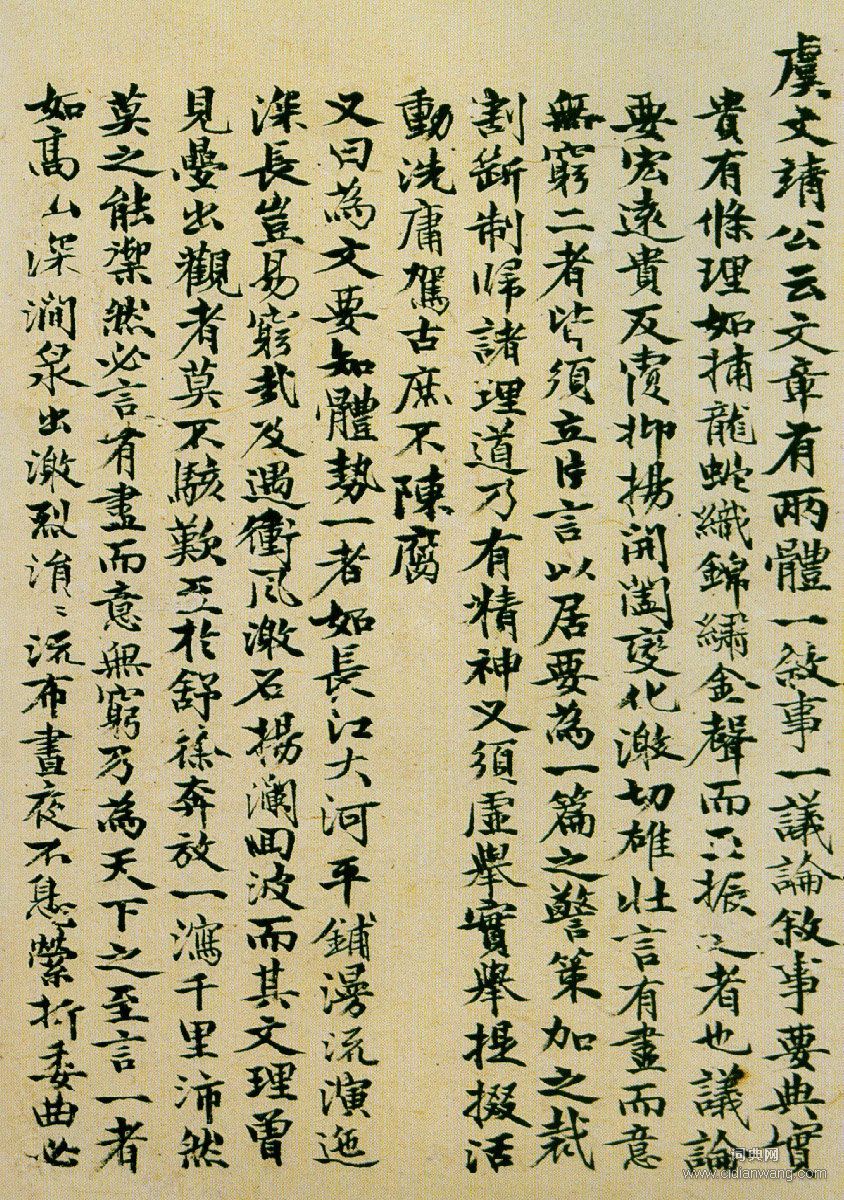 虞文靖公云文章有兩體一敘事一議論敘事要典實
貴有條理如捕龍蛇織錦繡金聲而玉振之者也議論
要宏遠貴反覆抑揚開闔變化激切雄壯言有盡而意
無窮二者皆須立片言以居要為一篇之警策加之裁
割斷制歸諸理道乃有精神又須虛舉實舉提掇活
動洗庸駕古庶不陳腐
又曰為文要知體勢一者如長江大河平鋪漫流演迤
深長豈易窮哉及遇衝風激石揚瀾回波而其文理曾
見疊出觀者莫不駭歎至於舒徐奔放一瀉千里沛然
莫之能禦然必言有盡而意無窮乃為天下之至言一者
如高山深澗泉出激烈涓〻流布晝夜不息縈折委曲必
词典网
www.cidianwang.com